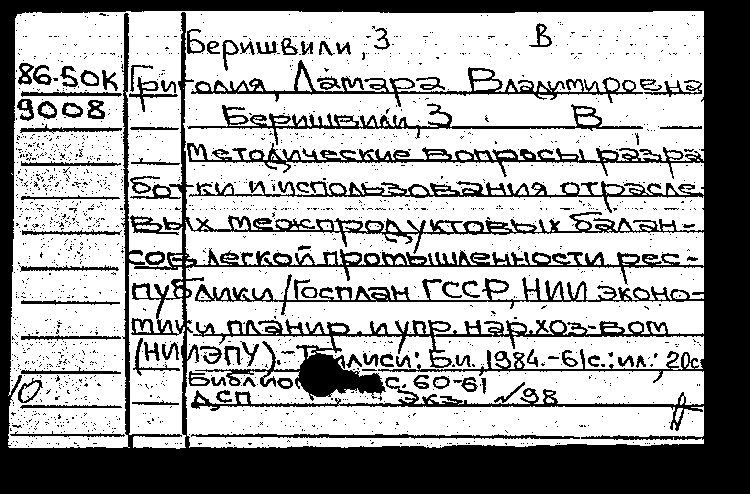 Беришвили, З В
86-50К Григолия, Ламара Владимировна,
9008 Беришвили, З В
Методические вопросы разра
ботки и использования отрасле-
вых межпродуктовых балан-
сов легкой промышленности рес-
публики /Госплан ГССР, НИИ эконо-
мики, планир. и упр. нар. хоз-вом
(НИИЭПУ).- Тбилиси: Б.и., 1984.-61с.: ил.; 20см
с. 60-61
ДСП экз. №98